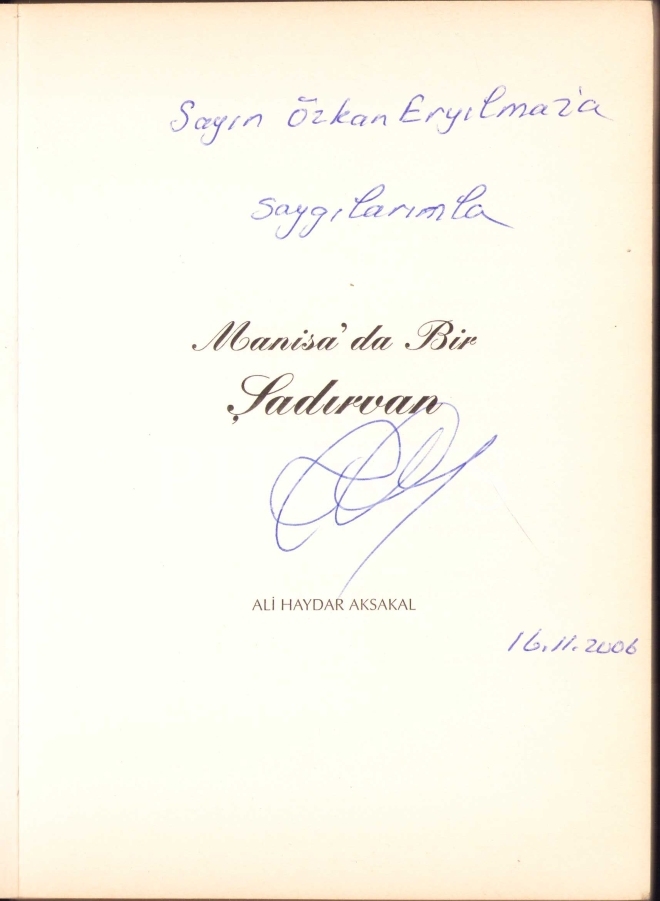 Sayın Özkan Eryılmaz'a
saygılarımla
Manisa'da Bir
Şadırvan
ALİ HAYDAR AKSAKAL
16.11.2006